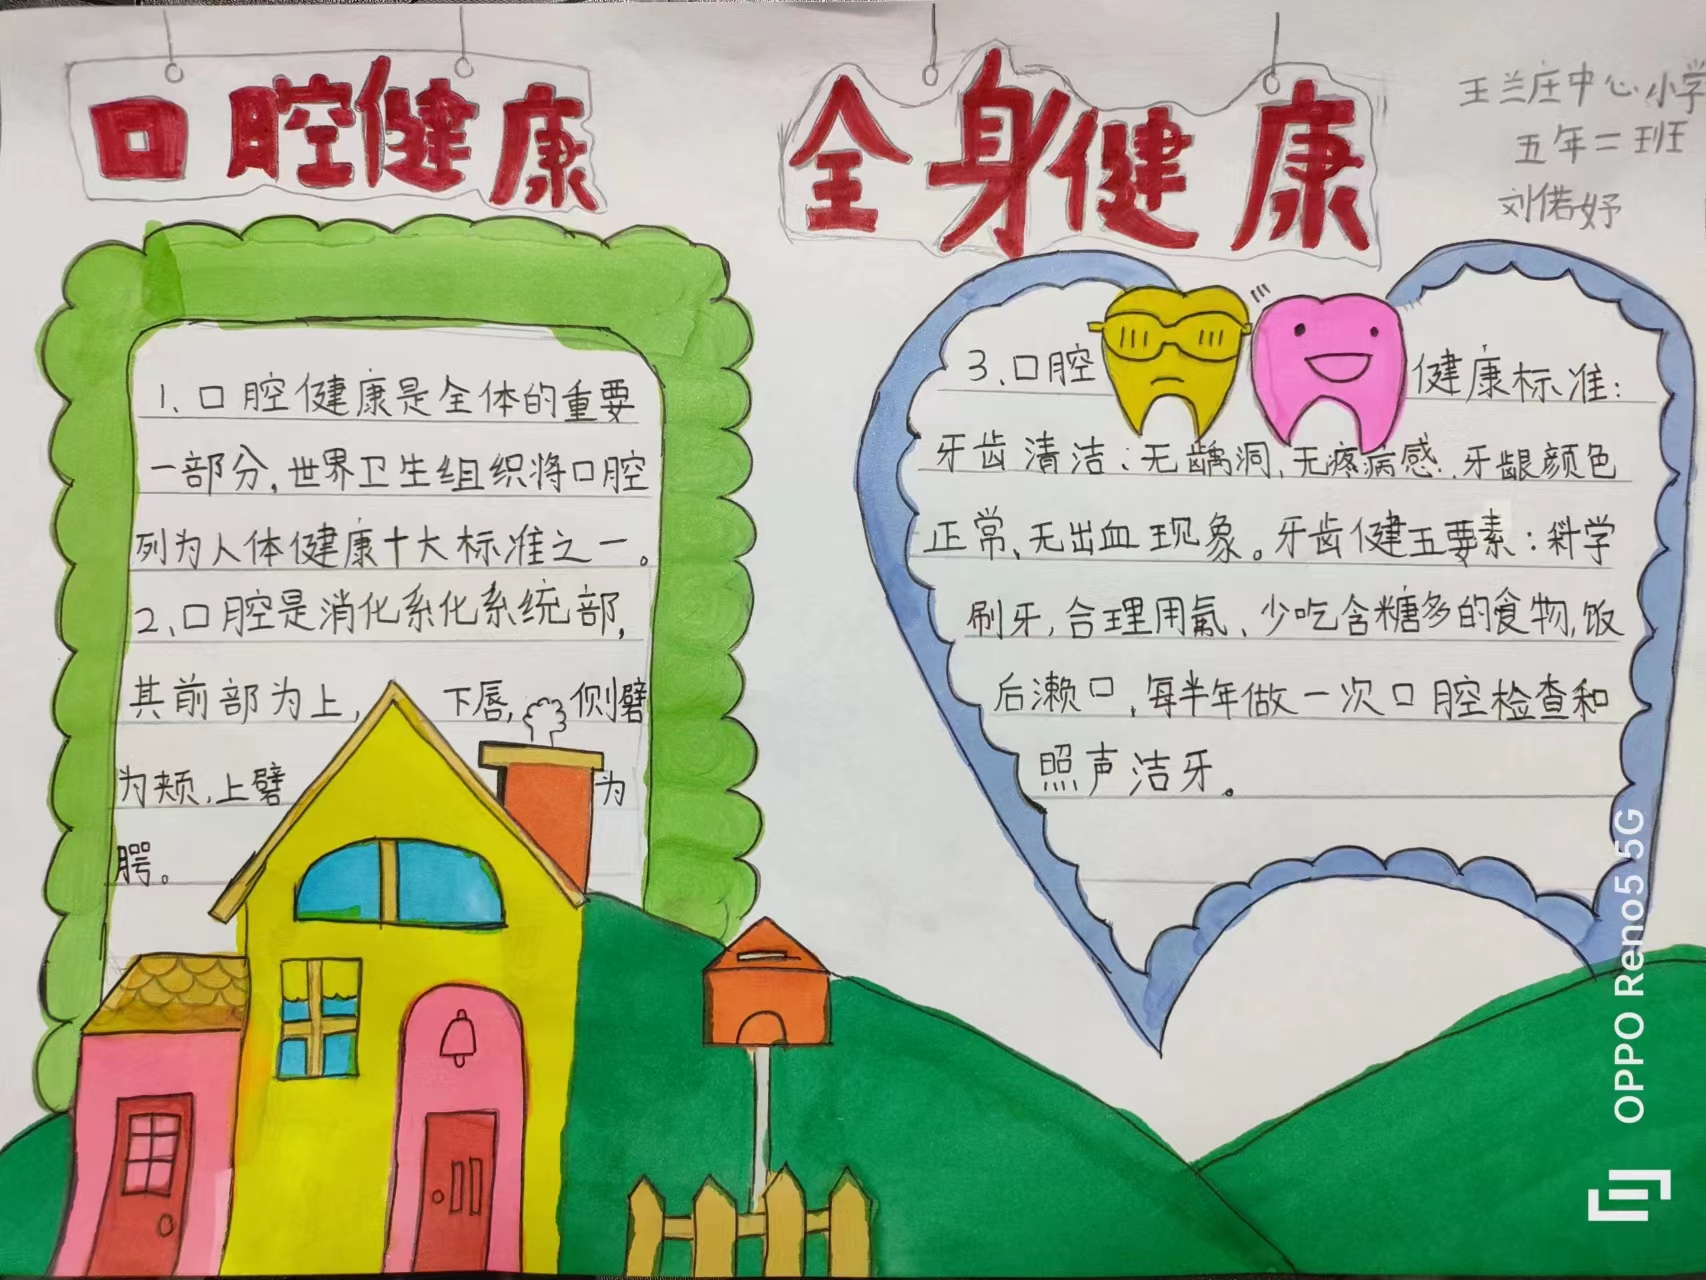 口腔健康
全身健康
王兰庄中心小学
五年二班
刘偌妤
1、口腔健康是全体的重要
一部分,世界卫生组织将口腔
列为人体健康十大标准之一。
2、口腔是消化系化系统部,
其前部为上, 下唇, 侧劈
为颊,上劈 为
腭。
3、口腔 健康标准:
牙齿清洁:无龋洞,无疼病感.牙龈颜色
正常、无出血现象。牙齿健五要素:科学
刷牙,合理用氟、少吃含糖多的食物,饭
后漱口,每半年做一次口腔检查和
照声洁牙。
OPPO Reno5 5G